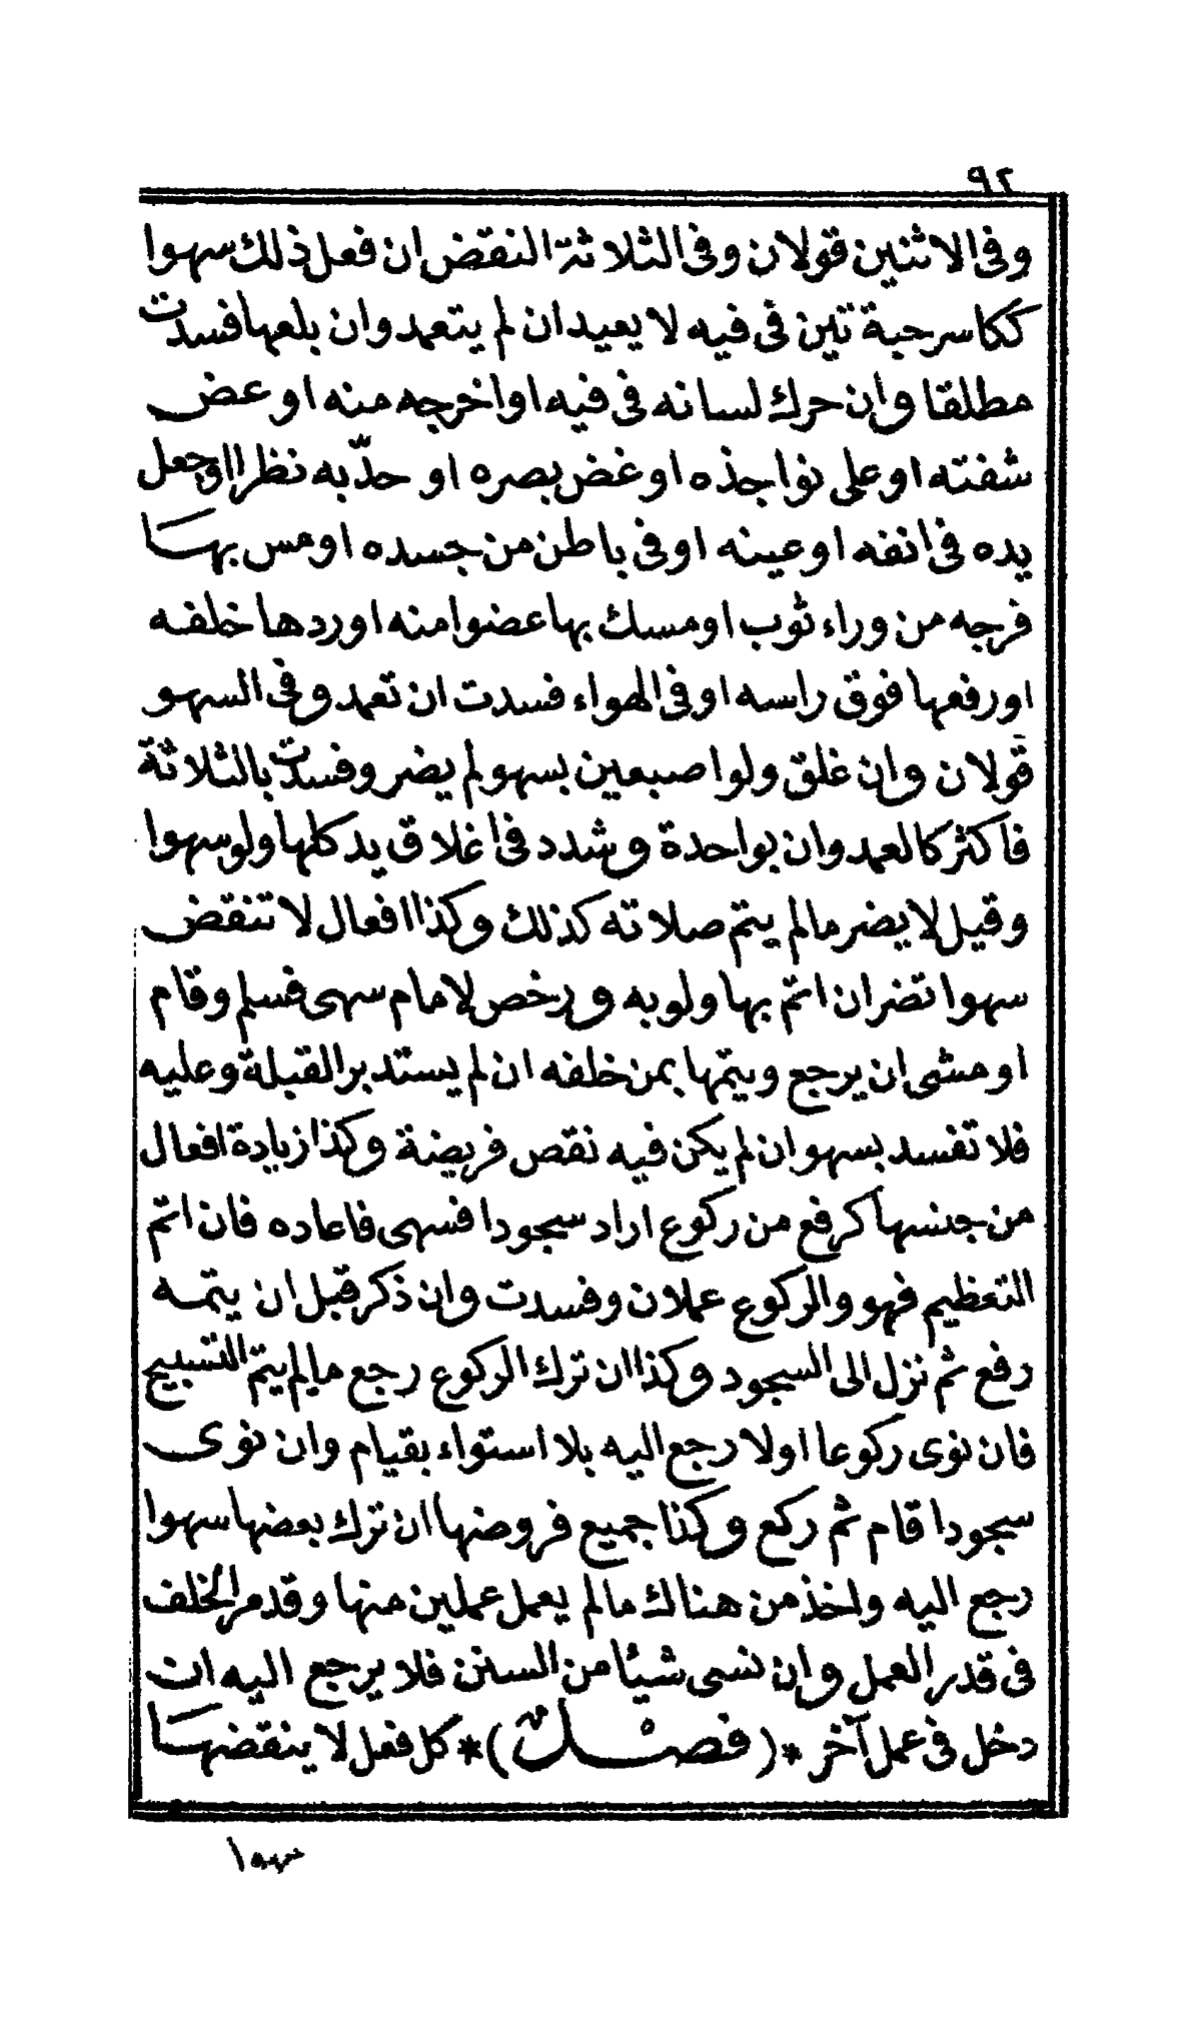 ٩٢
وفى الاثنين قولان وفى الثلاثة النقض ان فعل ذلك سهوا
ككاسر حبة تين فى فيه لا يعيد ان لم يتعمد وان بلعها فسدت
مطلقا وان حرك لسانه فى فيه او اخرجه منه او عض
شفته او على نواجذه او غض بصره او حدّ به نظرا او جعل
يده فى انفه او عينه او فى باطن من جسده او مس بهـا
فرجه من وراء ثوب او مسك بها عضوا منه او ردها خلفه
او رفعها فوق راسه او فى الهواء فسدت ان تعمد وفى السهو
قولان وان غلق ولو اصبعين بسهو لم يضر وفسدت بالثلاثة
فاكثر كالعمد وان بواحدة وشدد فى اغلاق يد كلها ولو سهوا
وقيل لا يضر مالم يتم صلاته كذلك وكذا افعال لا تنقض
سهوا تضر ان اتم بها ولو به ورخص لامام سهى فسلم وقام
او مشى ان يرجع ويتمها بمن خلفه ان لم يستدبر القبلة وعليه
فلا تفسد بسهو ان لم يكن فيه نقص فريضة وكذا زيادة افعال
من جنسها كرفع من ركوع اراد سجودا فسهى فاعاده فان اتم
التعظيم فهو والركوع عملان وفسدت وان ذكر قبل ان يتمه
رفع ثم نزل الى السجود وكذا ان ترك الركوع رجع مالم يتم التسبيح
فان نوى ركوعا اولا رجع اليه بلا استواء بقيام وان نوى
سجودا قام ثم ركع وكذا جميع فروضها ان ترك بعضها سهوا
رجع اليه واخذ من هناك مالم يعمل عملين منها وقد مر الخلف
فى قدر العمل وان نسى شيئا من السنن فلا يرجع اليه ان
دخل فى عمل آخر *( فصـل )* كل فعل لا ينقضهـا
سهوا